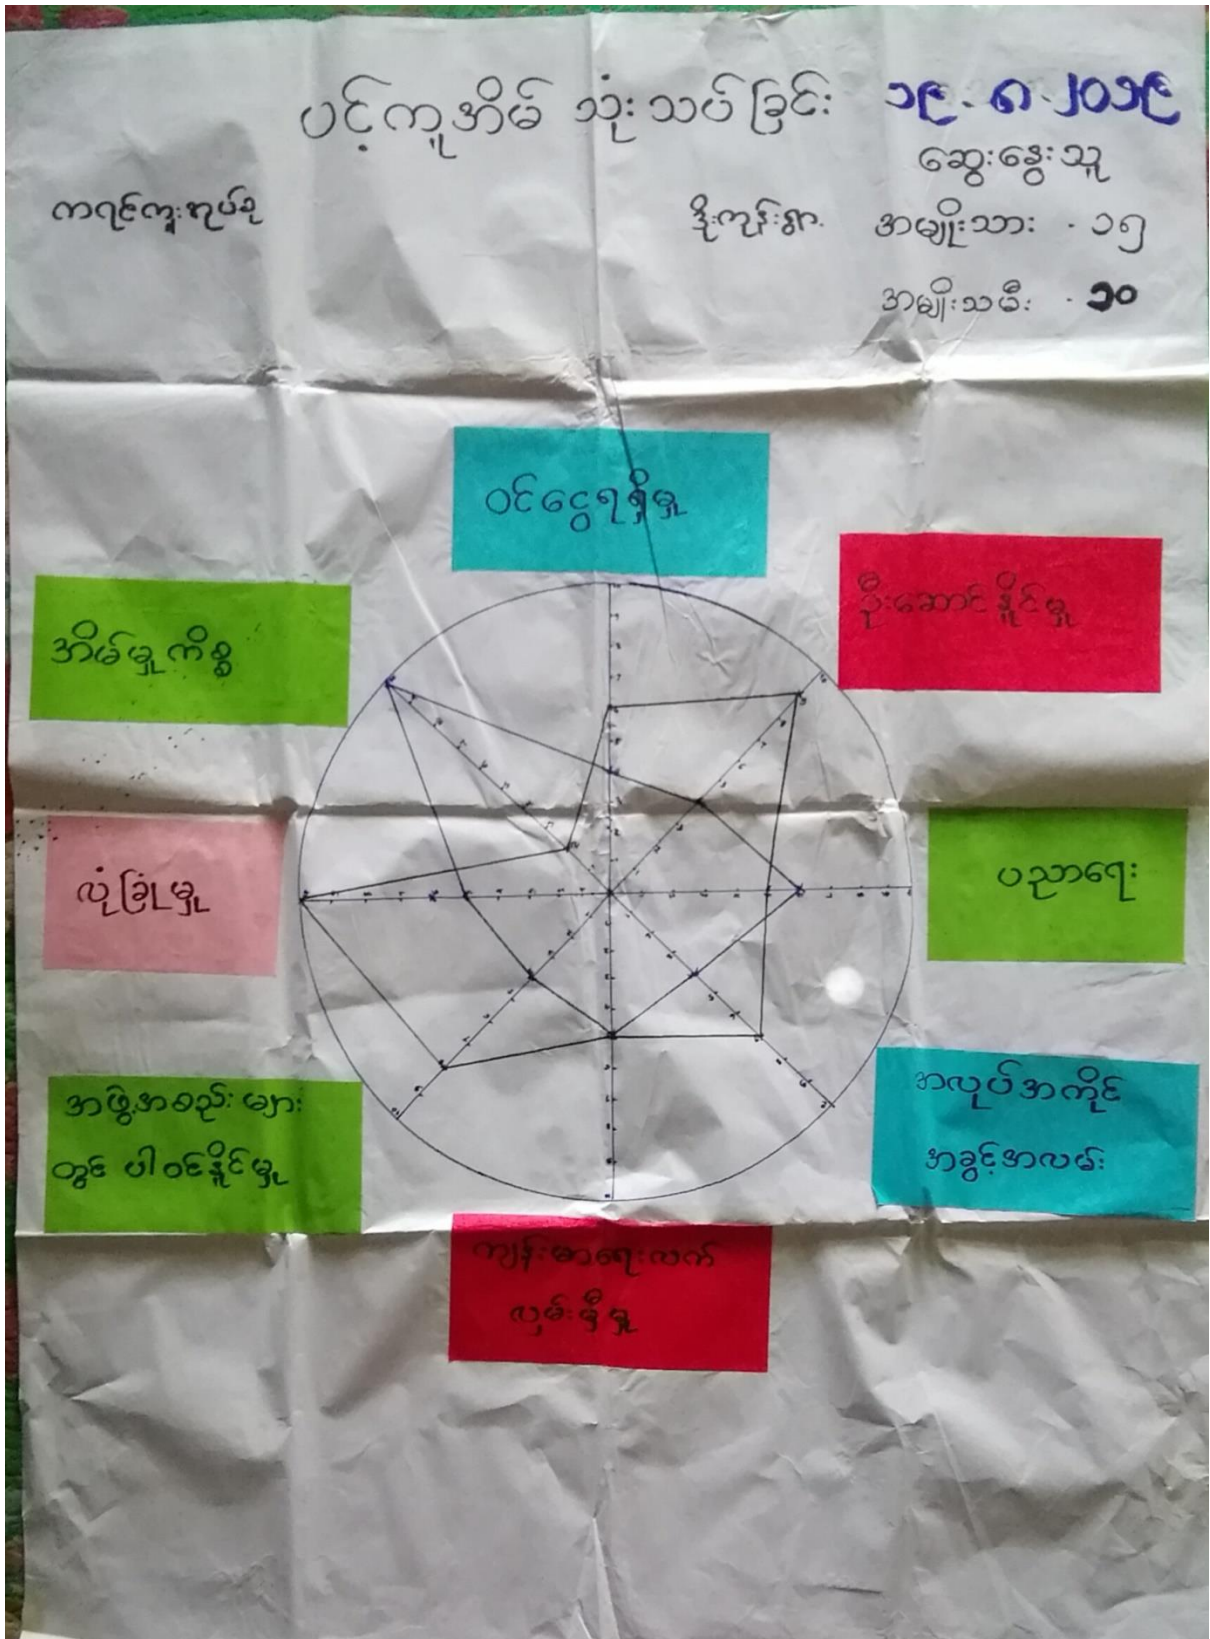 ပင့်ကူအိမ် သုံးသပ်ခြင်း
၁၉.၈.၂၀၁၉
ဆွေးနွေးသူ
ကရင်ကူးအုပ်စု
ဒိုးကုန်းရွာ.
အမျိုးသား - ၁၅
အမျိုးသမီး - ၁၀
ဝင်ငွေရရှိမှု
ဦးဆောင်နိူင်မှု
အိမ်မှုကိစ္စ
ပညာရေး
လုံခြုံမှု
အလုပ်အကိုင်
အခွင့်အလမ်း
အဖွဲ့အစည်းများ
တွင် ပါဝင်နိူင်မှု
ကျန်းမာရေးလက်
လှမ်းမှီမှု